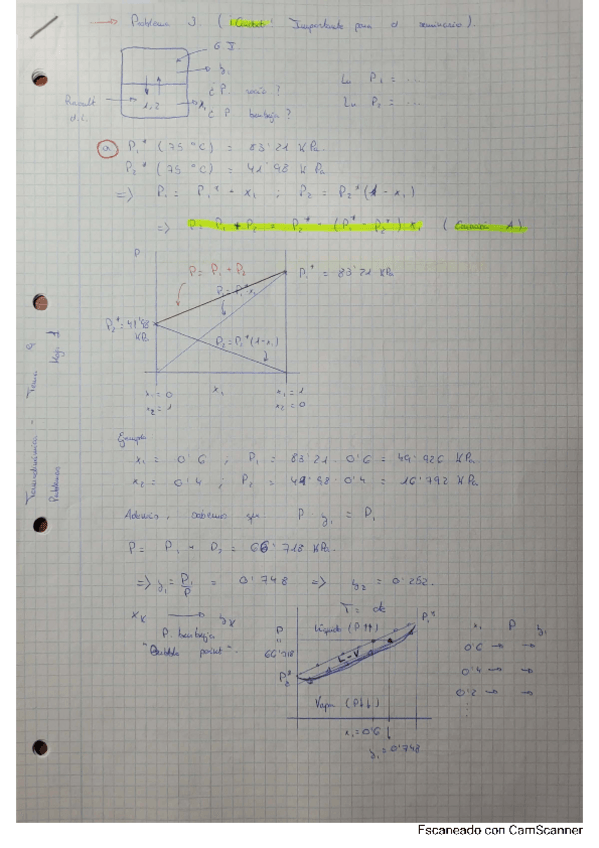 → Problema 3. (¡Cuidado! Importante para el seminario).
G I
y₁
1, 2
x₁
¿P. rocío?
¿P. burbuja?
Ln P₁ = ...
Ln P₂ = ...
a) P₁* (75 °C) = 83'21 KPa
P₂* (75 °C) = 41'98 KPa
=> P₁ = P₁* · x₁ ; P₂ = P₂* (1 - x₁)
=> P = P₁ + P₂ = P₂* - (P₁* - P₂*) x₁ (Ecuación A)
P
P = P₁ + P₂
P₁ = P₁* · x₁
P₁* = 83'21 KPa
P₂* = 41'98 KPa
P₂ = P₂* (1 - x₁)
x₁ = 0
x₂ = 1
x₁
x₁ = 1
x₂ = 0
Termodinámica - Tema 9
Problemas
Hoja 1
Ejemplo
x₁ = 0'6 ; P₁ = 83'21 · 0'6 = 49'926 KPa
x₂ = 0'4 ; P₂ = 41'98 · 0'4 = 16'792 KPa
Además, sabemos que P y₁ = P₁
P = P₁ + P₂ = 66'718 KPa.
=> y₁ = P₁/P = 0'748 => y₂ = 0'252
xₖ → yₖ
P. burbuja
"Bubble point".
T = cte
P
"
66'718
P₂*
Líquido (P↑↑)
P₁*
L-V
Vapor (P↓↓)
x₁ = 0'6
y₁ = 0'748
x₁ P y₁
0'6 → →
0'4 → →
0'2 → →
⋮
Escaneado con CamScanner